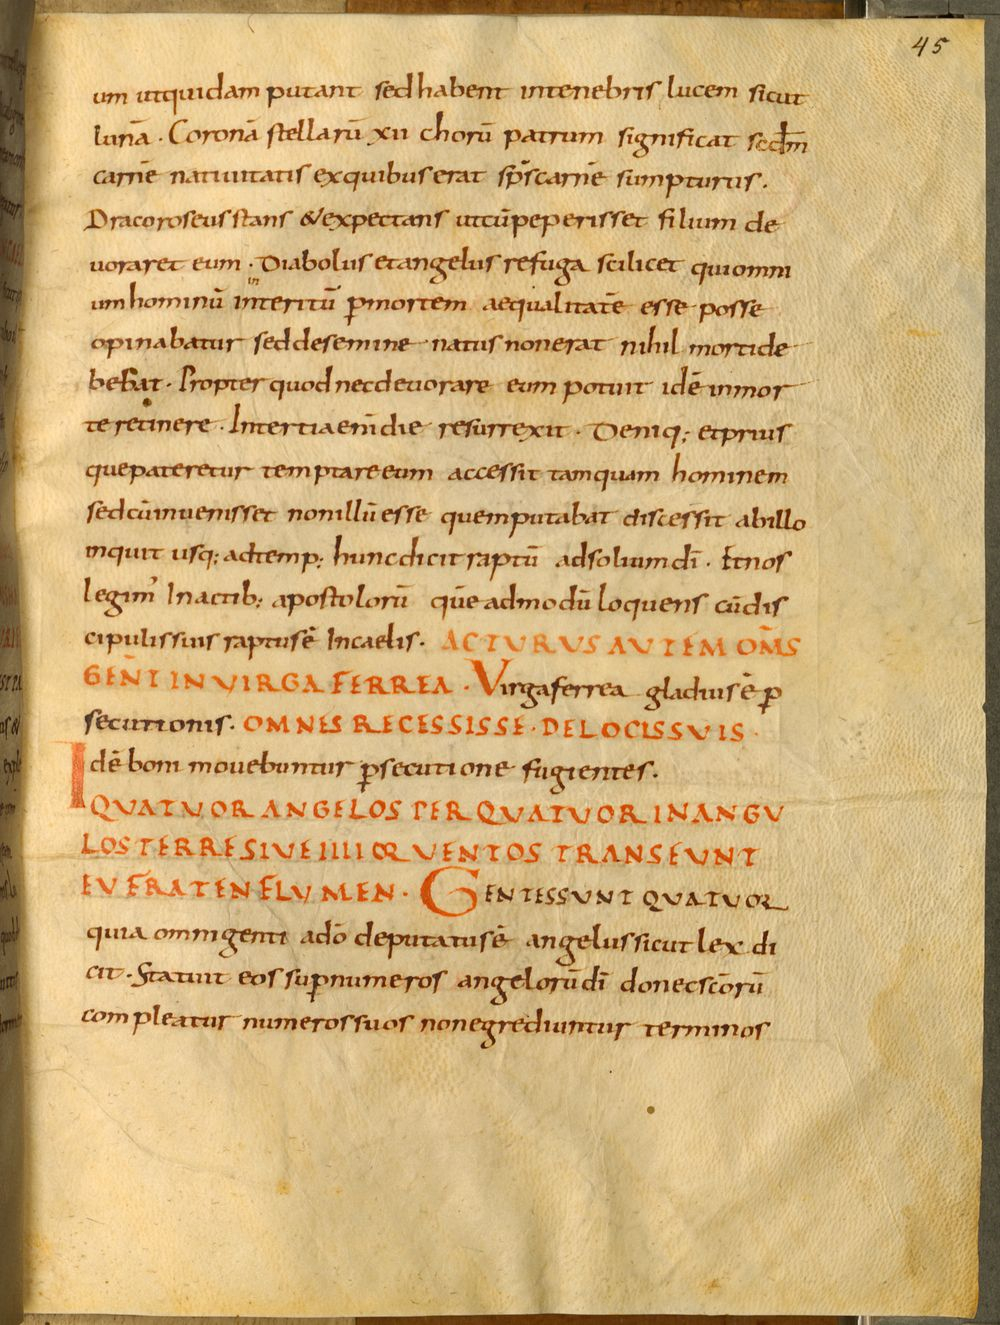 45
um utquidam putant sed habent intenebris lucem sicut
lunā · Coronā stellarū xii chorū patrum significat secdm̄
carnē natiuitatis exquibus erat sp̄s carnē sumpturus.
Draco roseus stans & expectans utcū peperisset filium de
uoraret eum · Diabolus et angelus refuga scilicet qui omni
um hominū in interitū p̄ mortem aequalitatē esse posse
opinabatur sed desemine natus non erat nihil morti de
bebat · Propter quod nec deuorare eum potuit idē in mor
te retinere · In tertia em̄ die resurrexit · Deniq; et prius
que pateretur temptare eum accessit tamquam hominem
sed cū inuenisset non illū esse quem putabat discessit ab illo
inquit usq; ad temp; hunc dicit raptū ad soliumdī · Et nos
legim' In actib; apostolorū quē admodū loquens cū dis
cipulis suis raptus ē In caelis · ACTURUS AUTEM OM̄S
GEN̄T IN VIRGA FERREA · Virga ferrea gladius ē p̄
secutionis · OMNES RECESSISSE · DE LOCIS SUIS ·
Idē boni mouebuntur p̄secutione fugientes.
QUATUOR ANGELOS PER QUATUOR IN ANGU
LOS TERRE SIVE IIII OR VENTOS TRANSEUNT
EUFRATEN FLUMEN · GENTES SUNT QUATUOR
quia omni genti adō deputatus ē angelus sicut lex di
cit · Statuit eos sup̄ numeros angelorū dī donec scōrū
compleatur numerossuos non egrediuntur terminos